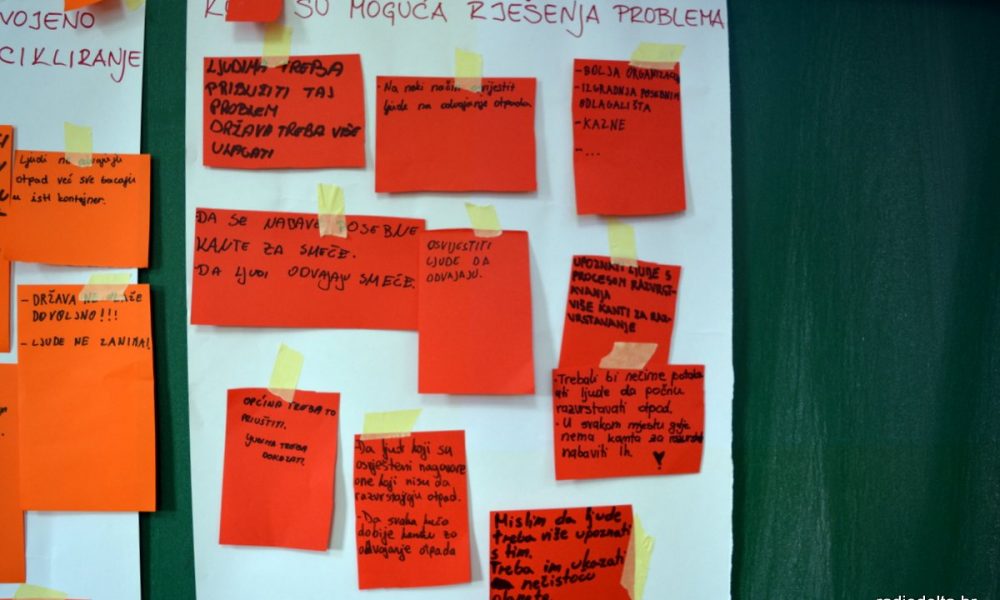 VOJENO
CIKLIRANJE
Ljudi ne odvajaju
otpad već sve bacaju
u isti kontejner.
- DRŽAVA NE
DOVOLJNO!!!
- LJUDE NE ZANIMA!
SU MOGUĆA RJEŠENJA PROBLEMA
LJUDIMA TREBA
PRIBLIŽITI TAJ
PROBLEM
DRŽAVA TREBA VIŠE
ULAGATI
- Na neki način
ljude na odvajanje otpada.
- BOLJA ORGANIZACIJA
- IZGRADNJA POSEBNIH
ODLAGALIŠTA
- KAZNE
- ...
DA SE NABAVE POSEBNE
KANTE ZA SMEĆE.
DA LJUDI ODVAJAJU SMEĆE.
OSVIJESTITI
LJUDE DA
ODVAJAJU.
UPOZNATI LJUDE S
PROCESOM RAZVRST-
AVANJA
VIŠE KANTI ZA RAZ-
VRSTAVANJE
- Trebali bi nečime potak
ljude da počnu
razvrstavati otpad.
- U svakom mjestu gdje
nema kanta za
nabaviti ih.
OPĆINA TREBA TO
PRIUŠTITI.
LJUDIMA TREBA
DOKAZATI.
- Da ljudi koji su
osvješteni nagovore
one koji nisu da
razvrstavaju otpad.
- Da svaka kuća
dobije kantu za
odvajanje otpada
Mislim da ljude
treba više upoznati
s tim.
Treba im ukazati
nečistoću
planete
radiodelta.hr